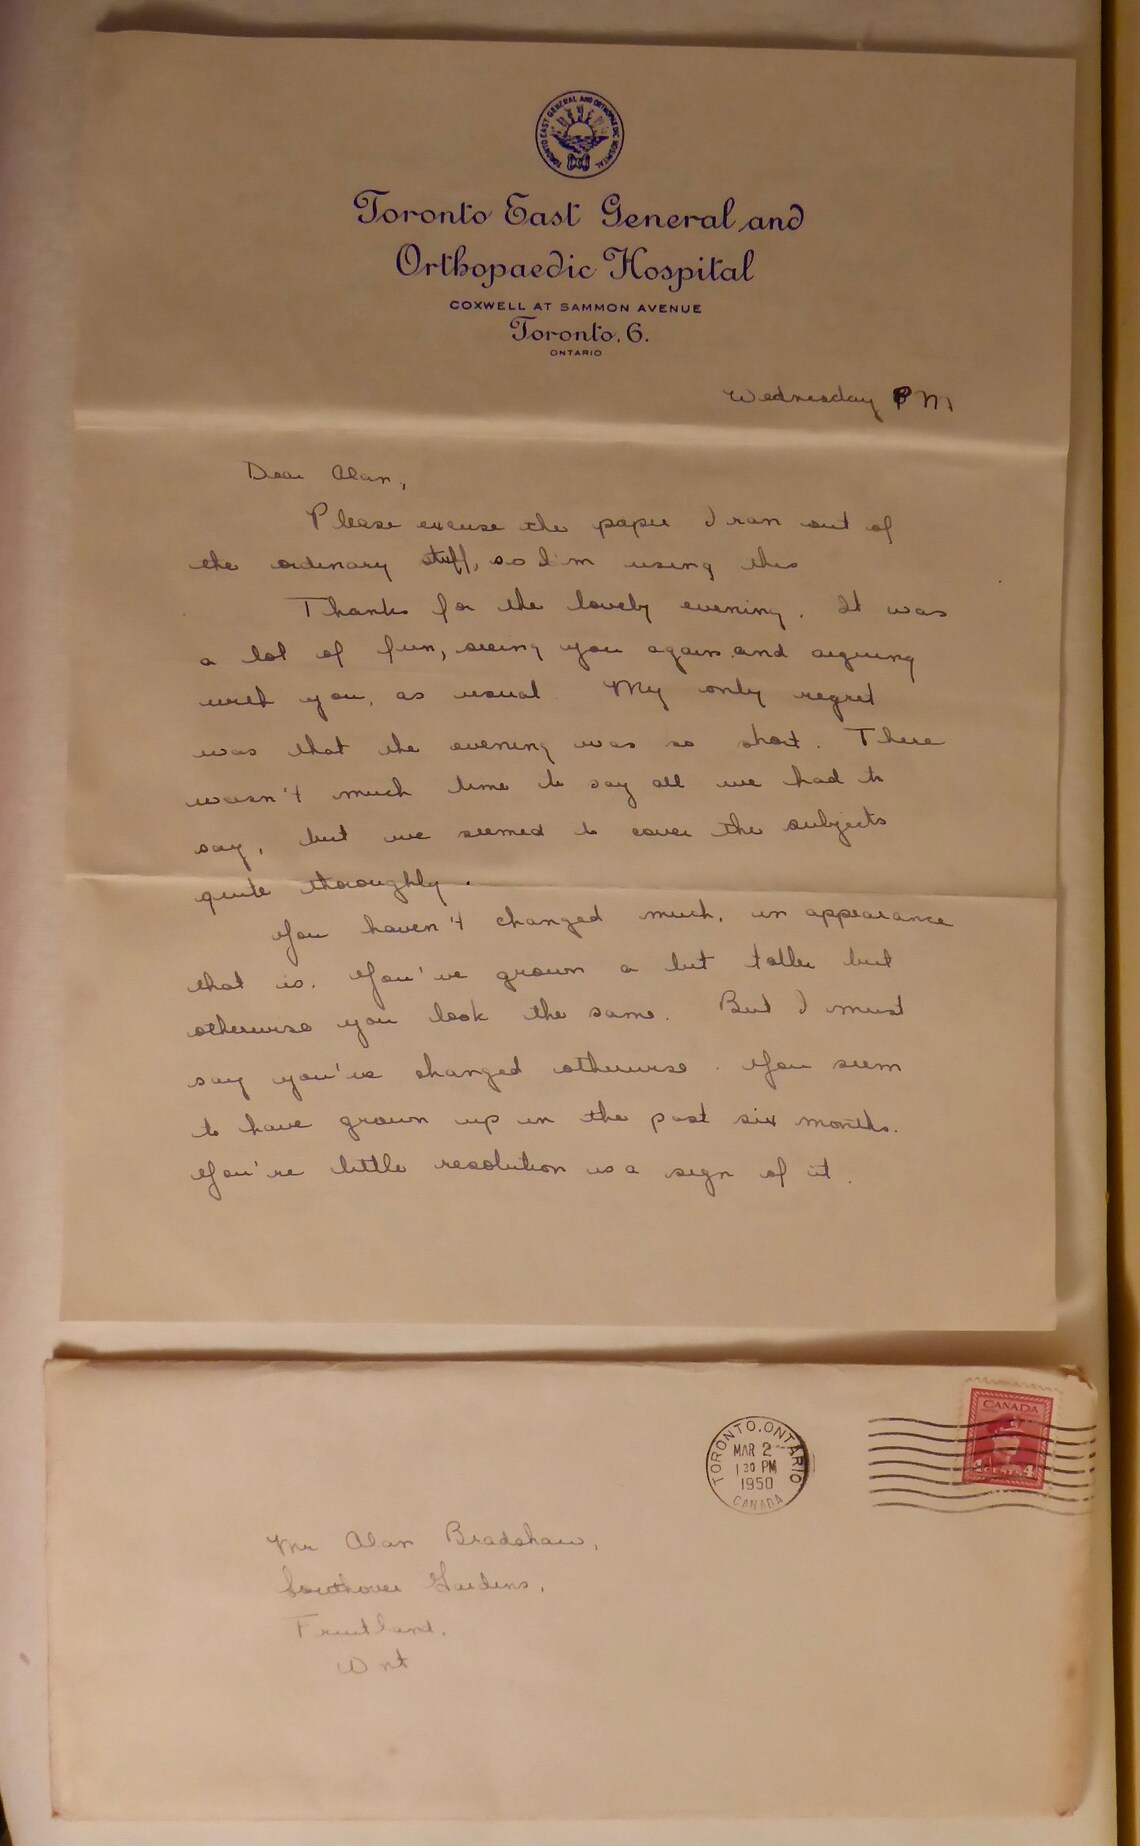 TORONTO EAST GENERAL AND ORTHOPAEDIC HOSPITAL
Toronto East General and
Orthopaedic Hospital
COXWELL AT SAMMON AVENUE
Toronto. 6.
ONTARIO
Wednesday PM
Dear Alan,
Please excuse the paper I ran out of
the ordinary stuff, so I'm using this
Thanks for the lovely evening. It was
a lot of fun, seeing you again and arguing
with you, as usual. My only regret
was that the evening was so short. There
wasn't much time to say all we had to
say, but we seemed to cover the subjects
quite thoroughly.
You haven't changed much, in appearance
that is. You've grown a bit taller but
otherwise you look the same. But I must
say you've changed otherwise. You seem
to have grown up in the past six months.
You're little resolution is a sign of it.
CANADA
4 CENTS 4
TORONTO, ONTARIO
MAR 2
1 30 PM
1950
CANADA
Mr Alan Bradshaw,
Southover Gardens,
Fruitland,
Ont